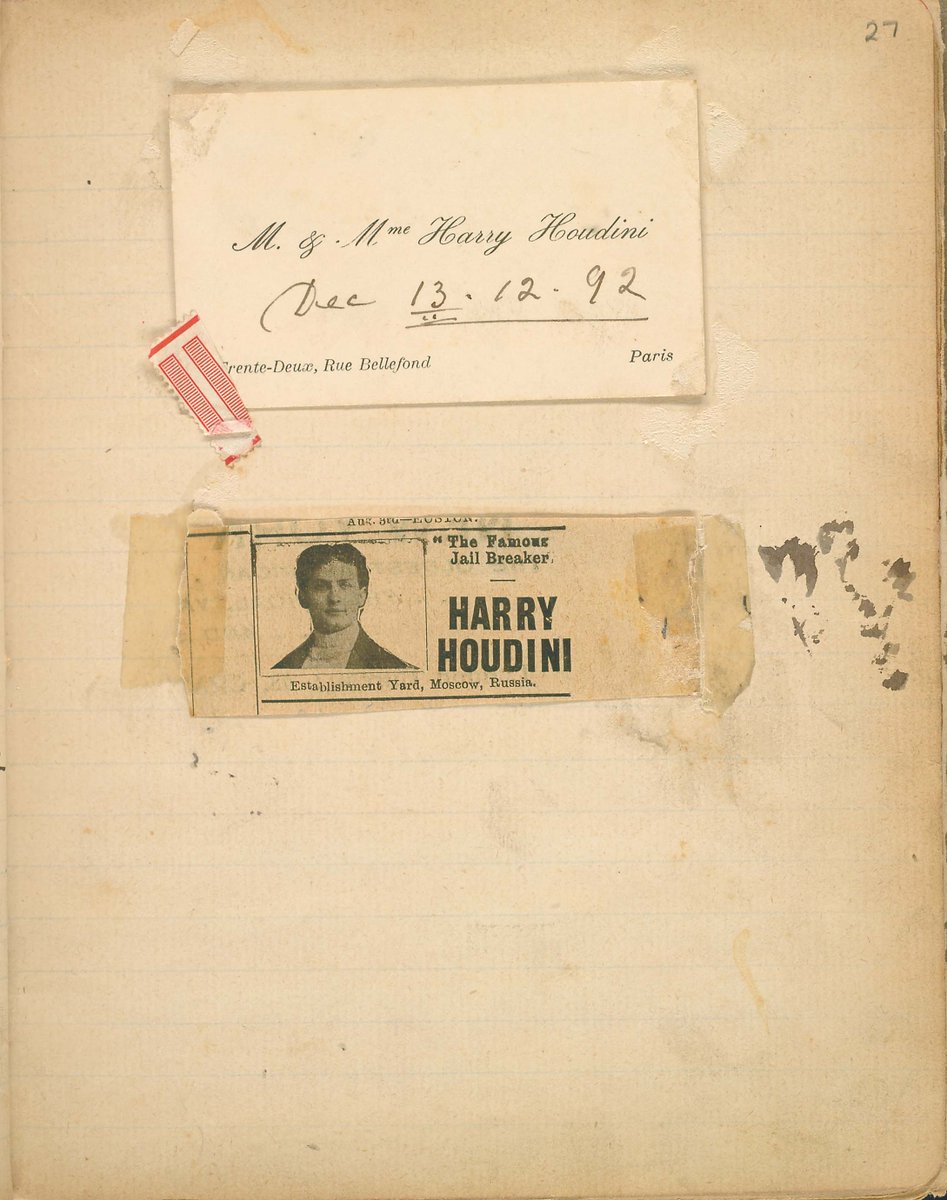 27
M. & Mme Harry Houdini
Dec 13. 12. 92
Trente-Deux, Rue Bellefond
Paris
Aug. 3rd—EUSTON.
"The Famous
Jail Breaker,
HARRY
HOUDINI
Establishment Yard, Moscow, Russia.